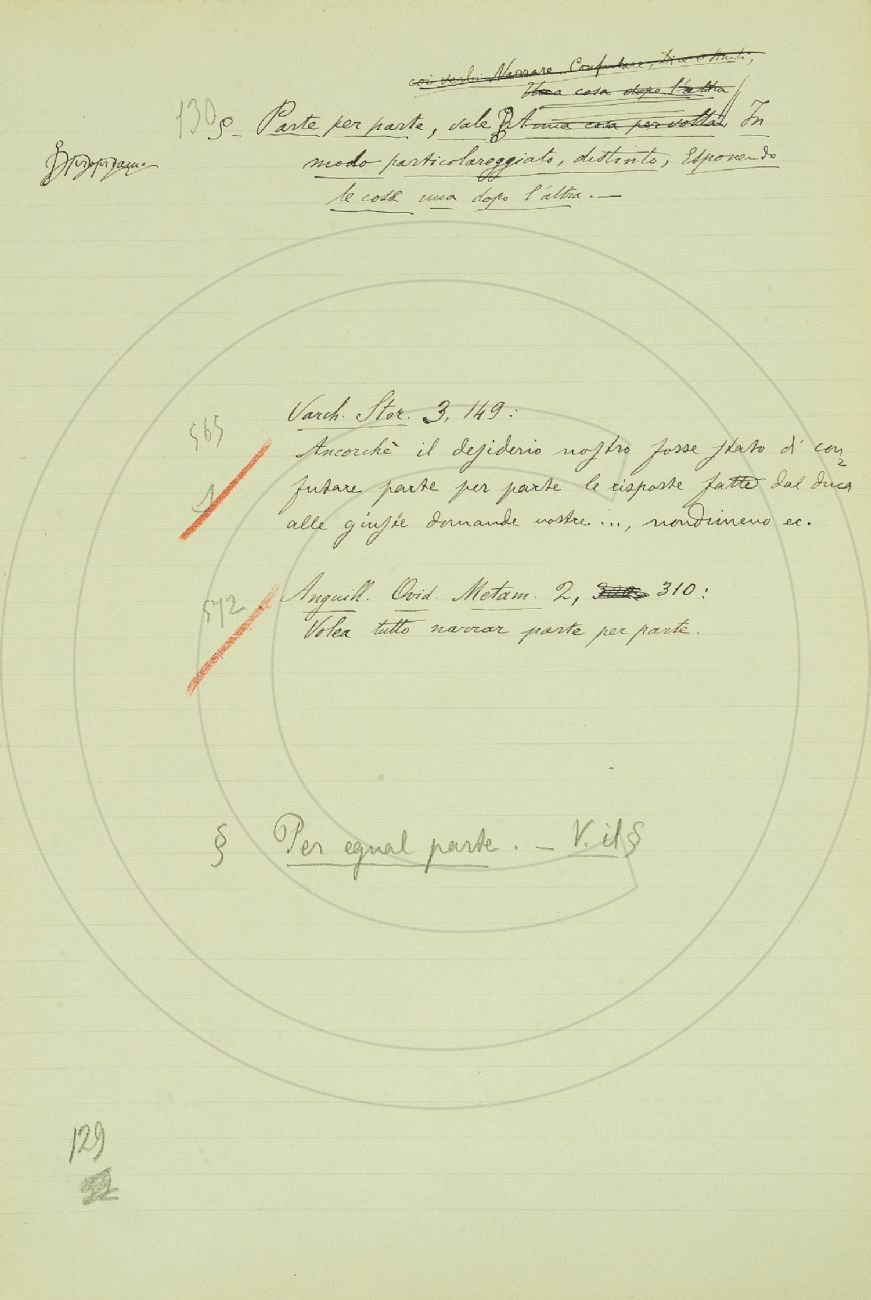 coi verbi Narrare, Confutare, Dire e simili,
Una cosa dopo l'altra
130 § - Parte per parte, vale A una cosa per volta. In
modo particolareggiato, distinto, Esponendo
le cose una dopo l'altra. —
565
Varch. Stor. 3, 149:
Ancorchè il desiderio nostro fosse stato di con
1
futare parte per parte le risposte fatte dal duca
alle giuste domande nostre ..., nondimeno ec.
572
Anguill. Ovid. Metam. 2, 310:
Volea tutto narrar parte per parte.
§ Per egual parte. — V. il §
129